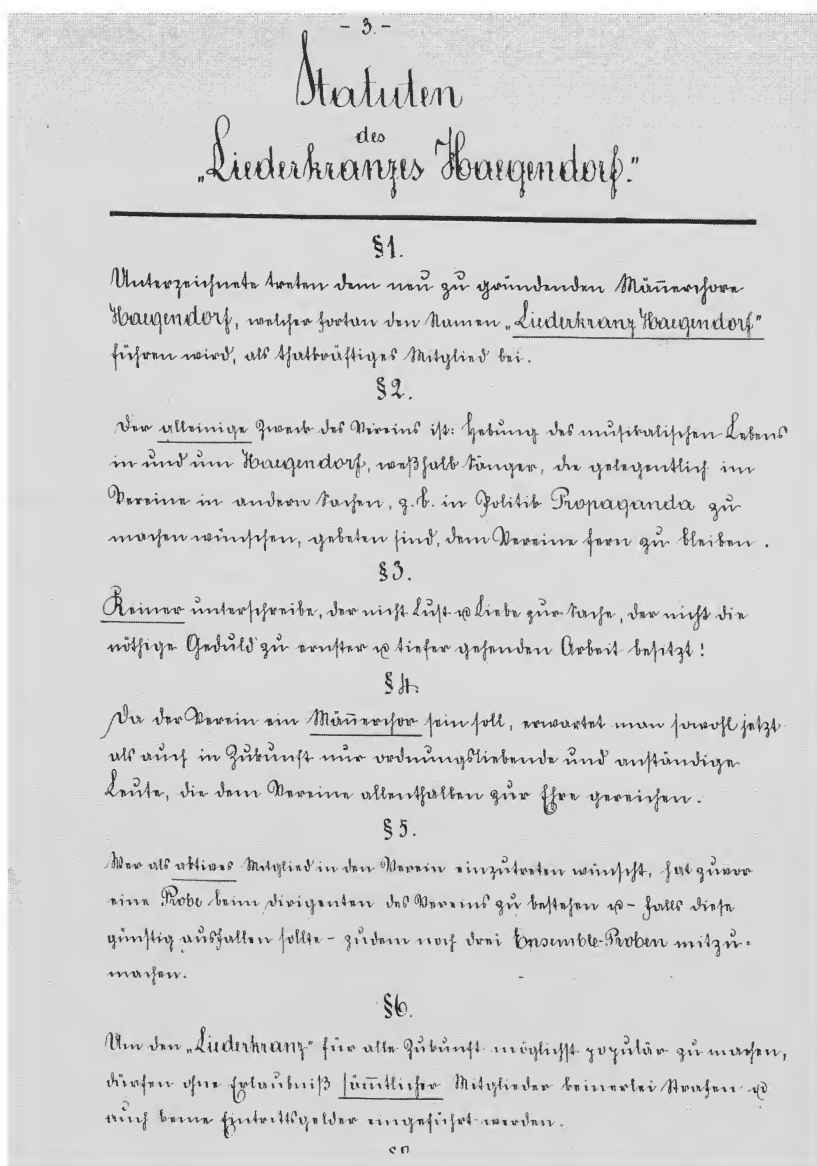 - 3. -
Statuten
des
„Liederkranzes Haegendorf."
§1.
Unterzeichnete treten dem neu zu gründenden Män̄erchore
Haegendorf, welcher fortan den Namen „Liederkranz Haegendorf"
führen wird, als thatkräftiges Mitglied bei.
§2.
Der alleinige Zweck des Vereins ist: Hebung des musikalischen Lebens
in und um Haegendorf, weßhalb Sänger, die gelegentlich im
Vereine in andern Sachen, z. b. in Politik Propaganda zu
machen wünschen, gebeten sind, dem Vereine fern zu bleiben.
§3.
Keiner unterschreibe, der nicht Lust u Liebe zur Sache, der nicht die
nöthige Geduld zu ernster u tiefer gehenden Arbeit besitzt!
§4.
Da der Verein ein Män̄erchor sein soll, erwartet man sowohl jetzt
als auch in Zukunft nur ordnungsliebende und anständige
Leute, die dem Vereine allenthalben zur Ehre gereichen.
§5.
Wer als aktives Mitglied in den Verein einzutreten wünscht, hat zuvor
eine Probe beim dirigenten des Vereins zu bestehen u - falls diese
günstig ausfallen sollte - zudem noch drei Ensemble-Proben mitzu=
machen.
§6.
Um den „Liederkranz" für alle Zukunft möglichst populär zu machen,
dürfen ohne Erlaubniß sämtlicher Mitglieder keinerlei Strafen u
auch keine Eintrittsgelder eingeführt werden.